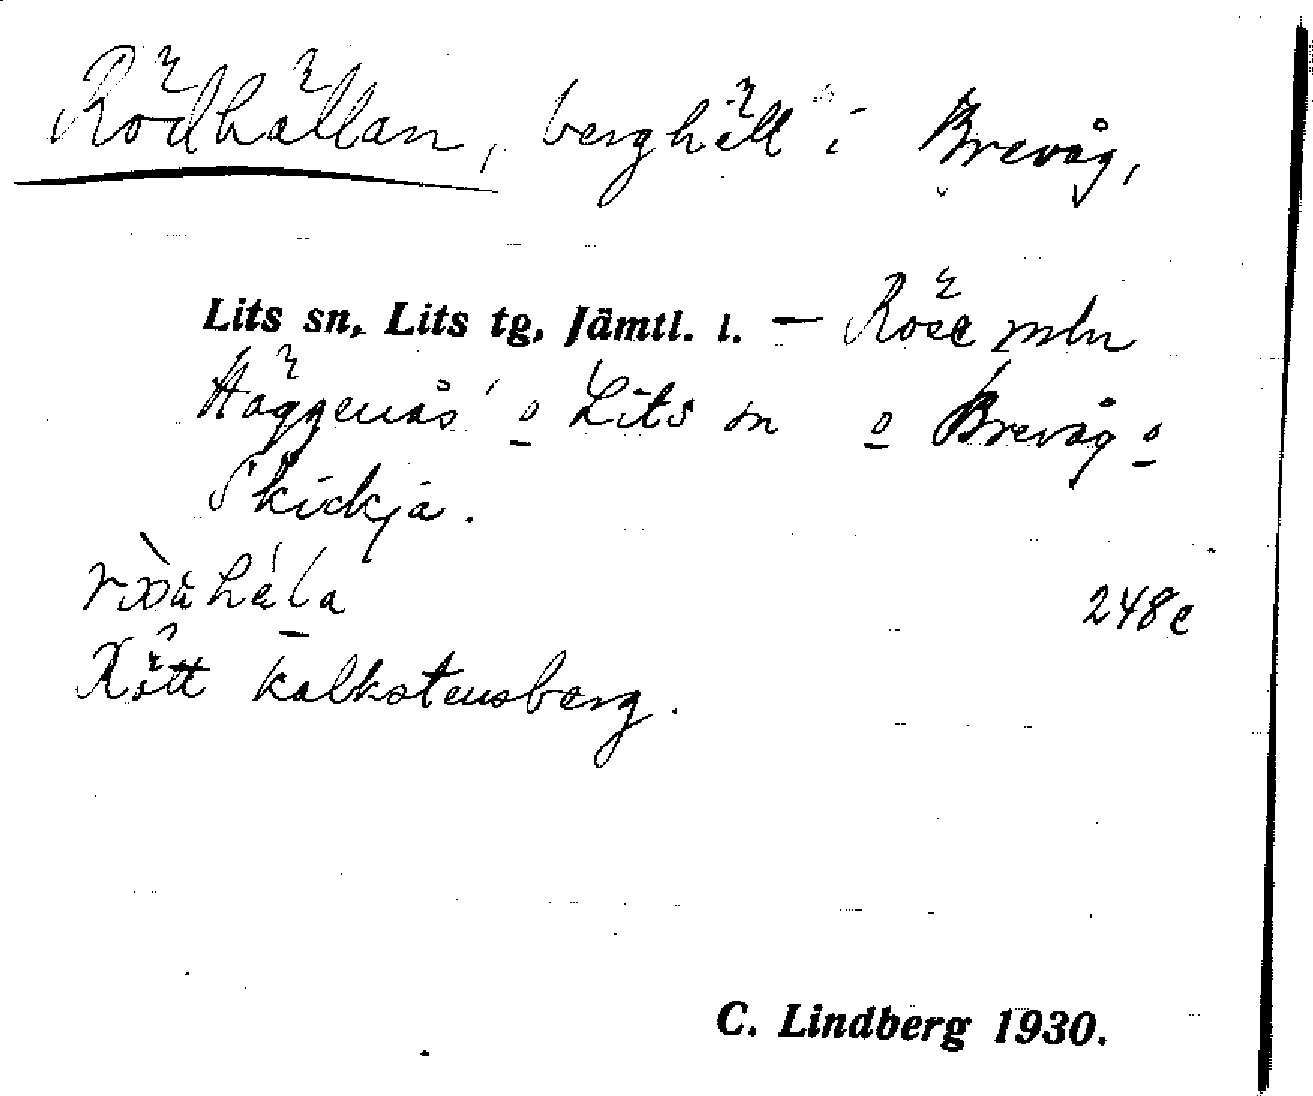 Rödhällan, berghäll i Brevåg,
Lits sn, Lits tg, Jämtl. l. – Röse mln
Häggenås o Lits sn o Brevåg o
Skickja.
248c
Rött kalkstensberg.
C. Lindberg 1930.